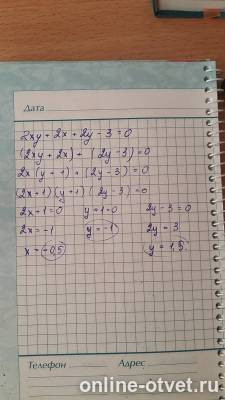 Дата
2xy + 2x + 2y - 3 = 0
(2xy + 2x) + (2y - 3) = 0
2x (y + 1) + (2y - 3) = 0
(2x + 1) (y + 1) (2y - 3) = 0
2x + 1 = 0 y + 1 = 0 2y - 3 = 0
2x = -1 y = -1 2y = 3
x = -0,5 y = 1,5
Телефон Адрес
online-otvet.ru